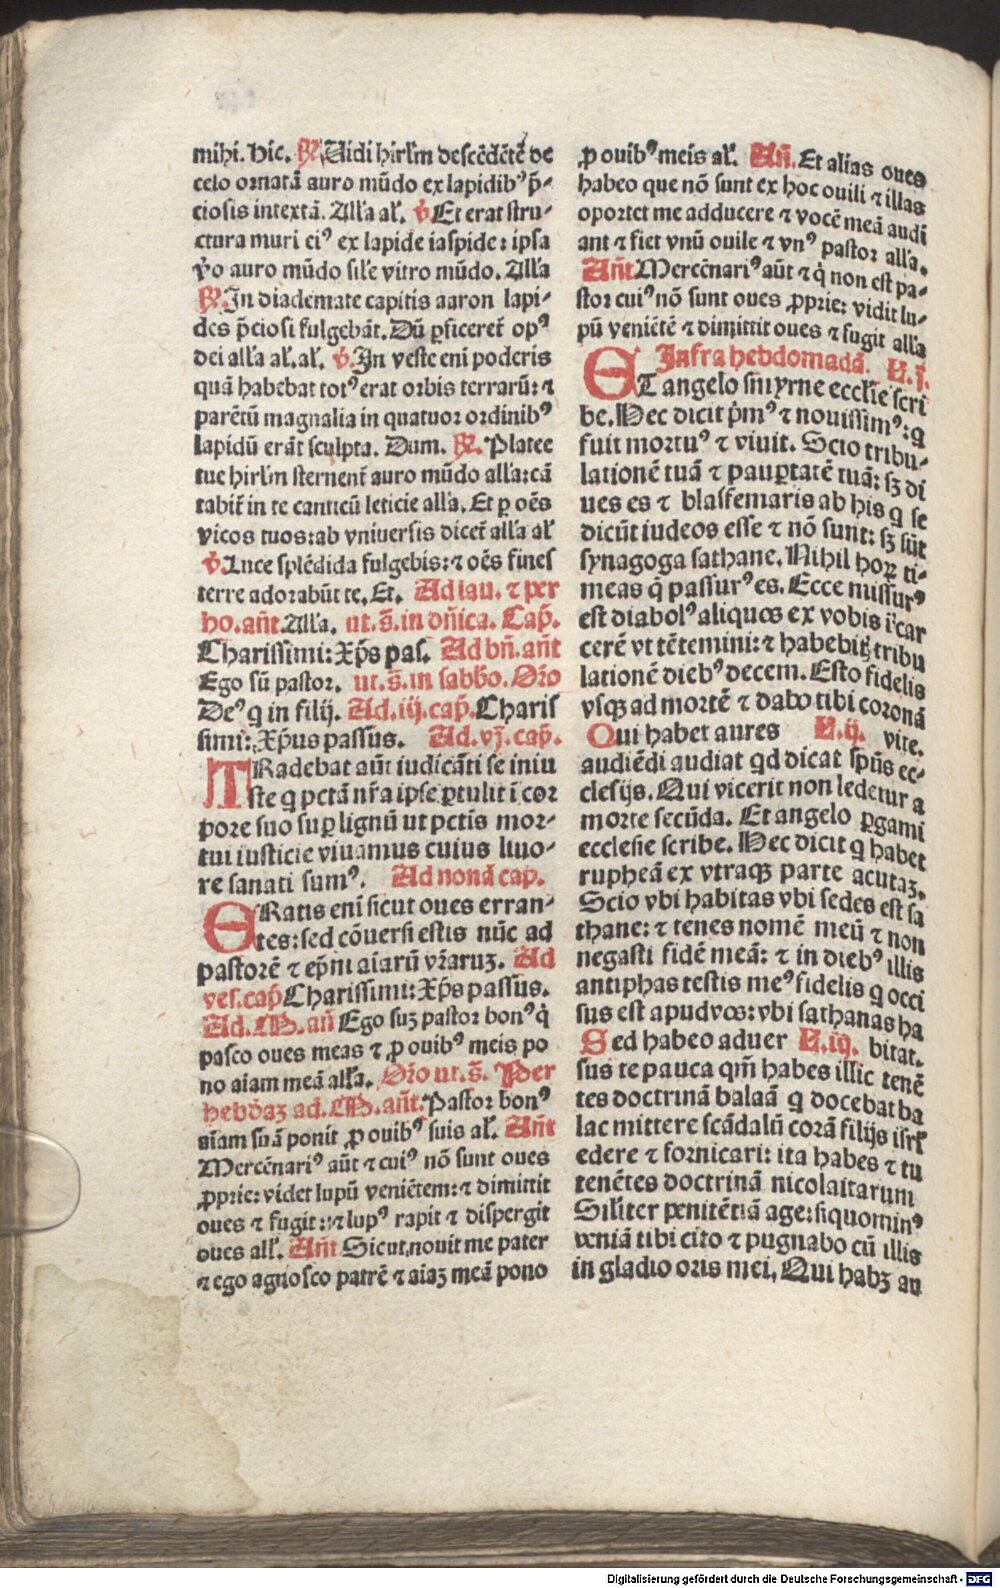 mihi. Hic. ℟ Uidi hirl'm descēdētē de
celo ornatā auro mūdo ex lapidib⁹ p̄-
ciosis intextā. Alľa aľ. ℣ Et erat stru-
ctura muri ei⁹ ex lapide iaspide: ipsa
v̊o auro mūdo siľe vitro mūdo. Alľa
℟ In diademate capitis aaron lapi-
des p̄ciosi fulgebāt. Dū ꝑficeret̄ op⁹
dei alľa aľ. aľ. ℣ In veste eni poderis
quā habebat tot⁹ erat orbis terrarū: ⁊
parētū magnalia in quatuor ordinib⁹
lapidū erāt sculpta. Dum. ℟ Platee
tue hirl'm sternent̄ auro mūdo alľa: cā
tabit̄ in te canticū leticie alľa. Et ꝑ oēs
vicos tuos: ab vniuersis dicet̄ alľa aľ
℣ Luce splēdida fulgebis: ⁊ oēs fines
terre adorabūt te. Et. Ad lau. ⁊ per
ho. añt. Alľa. ut. s̄. in dñica. Cap̄.
Charissimi: Xp̄s pas. Ad bñ. añt
Ego sū pastor. ut. s̄. in sabbo. Oro
De⁹ q in filij. Ad. iij. cap̄. Charis
simi: Xp̄us passus. Ad. vj. cap̄.
TRadebat aūt iudicāti se iniu
ste q pctā nr̄a ipse ꝑtulit ī cor
pore suo suꝑ lignū ut pctis mor-
tui iusticie viuamus cuius liuo-
re sanati sum⁹. Ad nonā cap.
ERatis eni sicut oues erran-
tes: sed cōuersi estis nūc ad
pastorē ⁊ ep̄m aiarū vr̄aruꝫ. Ad
ves. cap̄ Charissimi: Xp̄s passus.
Ad. M. añ Ego suꝫ pastor bon⁹ q̇
pasco oues meas ⁊ ꝓ ouib⁹ meis po
no aiam meā alľa. Oro ut. s̄. Per
hebdaꝫ ad. M. añt. Pastor bon⁹
aīam suā ponit ꝓ ouib⁹ suis aľ. Añt
Mercēnari⁹ aūt ⁊ cui⁹ nō sunt oues
ꝓprie: videt lupū veniētem: ⁊ dimittit
oues ⁊ fugit: ⁊ lup⁹ rapit ⁊ dispergit
oues alľ. Añt Sicut nouit me pater
⁊ ego agnosco patrē ⁊ aiaꝫ meā pono
ꝓ ouib⁹ meis aľ. Añ. Et alias oues
habeo que nō sunt ex hoc ouili ⁊ illas
oportet me adducere ⁊ vocē meā audi
ant ⁊ fiet vnū ouile ⁊ vn⁹ pastor alľa.
Añt Mercēnari⁹ aūt ⁊ q̇ non est pa-
stor cui⁹ nō sunt oues ꝓprie: vidit lu-
pū veniētē ⁊ dimittit oues ⁊ fugit alľa
Infra hebdomadā. L. j.
ET angelo smyrne ecclīe scri
be. Hec dicit p̄m⁹ ⁊ nouissim⁹: q
fuit mortu⁹ ⁊ viuit. Scio tribu-
lationē tuā ⁊ pauꝑtatē tuā: sꝫ di
ues es ⁊ blasfemaris ab his q se
dicūt iudeos esse ⁊ nō sunt: sꝫ sūt
synagoga sathane. Nihil hoꝝ ti-
meas q̇ passur⁹ es. Ecce missur⁹
est diabol⁹ aliquos ex vobis ī car
cerē vt tētemini: ⁊ habebitꝫ tribu
lationē dieb⁹ decem. Esto fidelis
vsqꝫ ad mortē ⁊ dabo tibi coronā
Qui habet aures L. ij. vite.
audiēdi audiat qd dicat spūs ec-
clesijs. Qui vicerit non ledetur a
morte secūda. Et angelo ꝑgami
ecclesie scribe. Hec dicit q habet
rupheā ex vtraqꝫ parte acutaꝫ.
Scio vbi habitas vbi sedes est sa
thane: ⁊ tenes nomē meū ⁊ non
negasti fidē meā: ⁊ in dieb⁹ illis
antiphas testis me⁹ fidelis q occi
sus est apud vos: vbi sathanas ha
Sed habeo aduer L. iij. bitat.
sus te pauca qm̄ habes illic tenē
tes doctrinā balaā q docebat ba
lac mittere scādalū corā filijs isrľ
edere ⁊ fornicari: ita habes ⁊ tu
tenētes doctrinā nicolaitarum
Siľiter penitētiā age: si quomin⁹
veniā tibi cito ⁊ pugnabo cū illis
in gladio oris mei. Qui habꝫ au
Digitalisierung gefördert durch die Deutsche Forschungsgemeinschaft - DFG